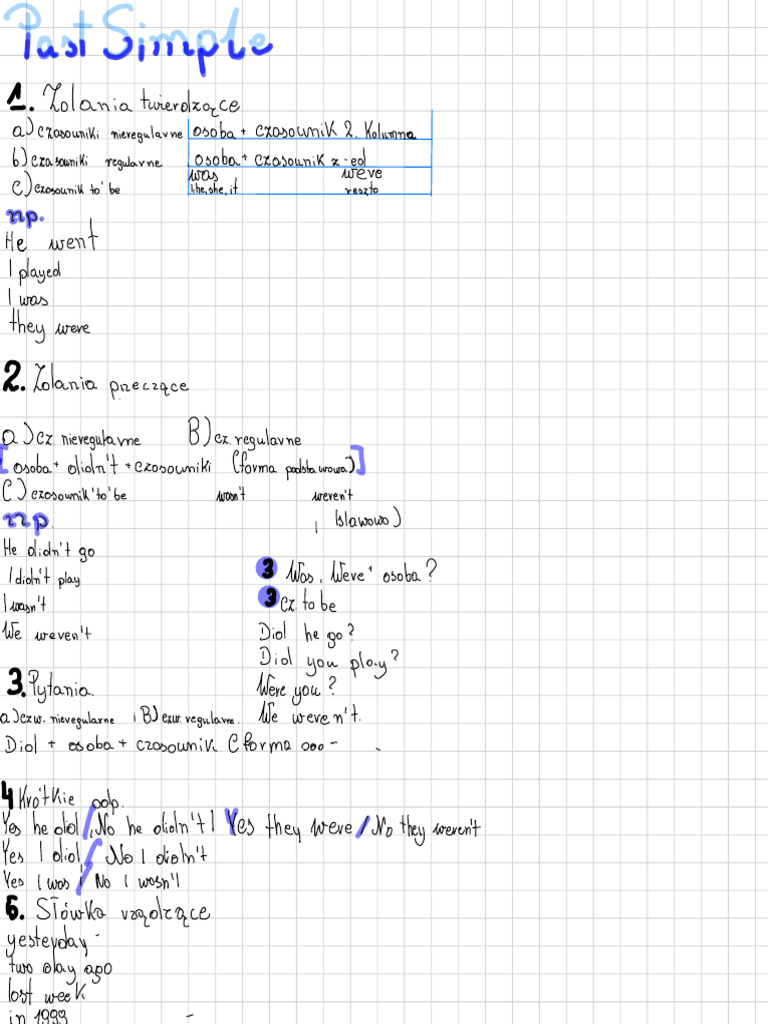 Past Simple
1. Zdania twierdzące
a) czasowniki nieregularne osoba + czasownik 2. kolumna
b) czasowniki regularne osoba + czasownik z -ed
c) czasownik to be was were
he, she, it reszta
np.
He went
I played
I was
they were
2. Zdania przeczące
a) cz nieregularne B) cz. regularne
[osoba + didn't + czasowniki (forma podstawowa)]
C) czasownik 'to' be wasn't weren't
(stawowa)
np.
He didn't go
I didn't play
I wasn't
We weren't
3 Was, Were + osoba?
3 cz. to be
Did he go?
Did you play?
Were you?
We weren't.
3. Pytania.
a) czw. nieregularne i B) czw. regularne.
Did + osoba + czasownik (forma ooo-
4 Krótkie odp.
Yes he did / No he didn't | Yes they were / No they weren't
Yes I did / No I didn't
Yes I was / No I wasn't
5. Słówka rządzące
yesterday -
two day ago
last week
in 1999 -